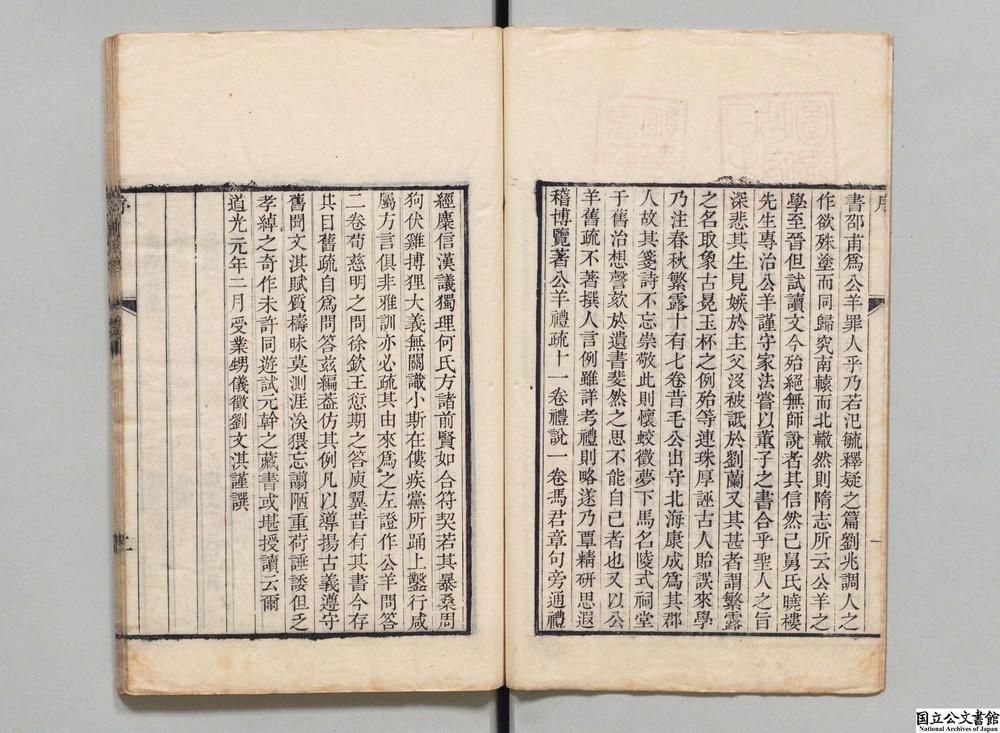 序
書邵甫爲公羊罪人乎乃若氾毓釋疑之篇劉兆調人之
作欲殊塗而同歸究南轅而北轍然則隋志所云公羊之
學至晉但試讀文今殆絕無師說者其信然已舅氏曉樓
先生專治公羊謹守家法嘗以董子之書合乎聖人之旨
深悲其生見嫉於主父沒被詆於劉蘭又其甚者謂繁露
之名取象古冕玉杯之例殆等連珠厚誣古人貽誤來學
乃注春秋繁露十有七卷昔毛公出守北海康成爲其郡
人故其箋詩不忘崇敬此則懷蛟徵夢下馬名陵式祠堂
于舊治想謦欬於遺書斐然之思不能自已者也又以公
羊舊疏不著撰人言例雖詳考禮則略遂乃覃精研思遐
稽博覽著公羊禮疏十一卷禮說一卷馬君章句旁通禮
經麋信漢議獨理何氏方諸前賢如合符契若其暴桑周
狗伏雞搏狸大義無關識小斯在僂疾黨所踊上鑿行咸
屬方言俱非雅訓亦必疏其由來爲之左證作公羊問答
二卷荀慈明之問徐欽王愆期之答庾翼昔有其書今存
其目舊疏自爲問答茲編葢仿其例凡以導揚古義遵守
舊聞文淇賦質檮昧莫測涯涘猥忘譾陋重荷諈諉但乏
孝綽之奇作未許同遊試元幹之藏書或堪授讀云爾
道光元年二月受業甥儀徵劉文淇謹譔
国立公文書館
National Archives of Japan